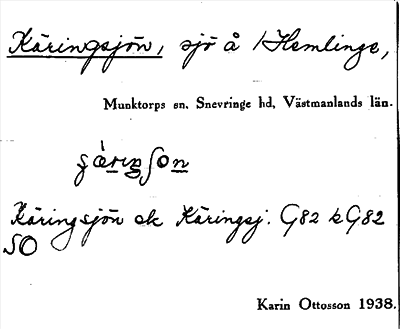 Käringsjön, sjö å Hemlinge,
Munktorps sn, Snevringe hd, Västmanlands län.
Käringsjön ek Käringsj. G82 k G82
SO
Karin Ottosson 1938.